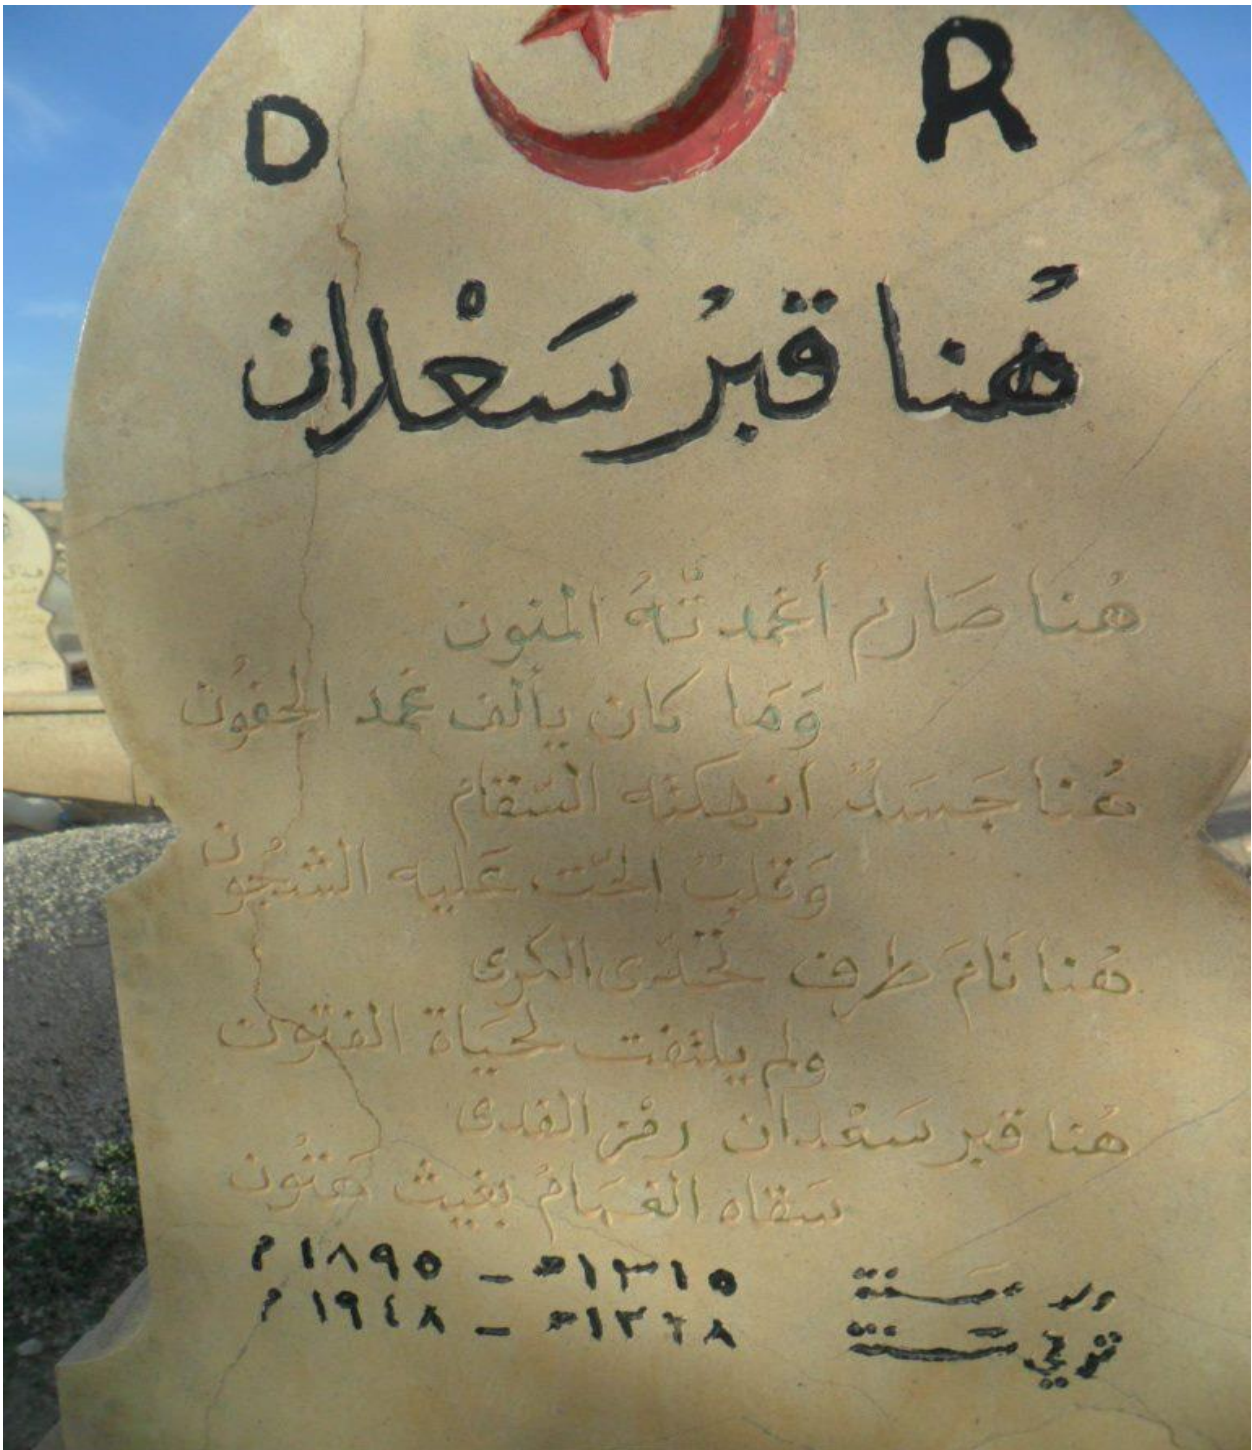 D R
هُنا قبرُ سَعْدان
هُنا صَارم أغمدتْهُ المنون
وَمَا كان يألف غمد الجفُون
هُنا جَسَدٌ أنهكته السّقام
وَقلبٌ الحّت عَليه الشجُون
هُنا نَامَ طرف تحدّى الكرى
ولم يلتفت لحيَاة الفتون
هُنا قبر سَعْدان رمْز الفدى
سَقاه الغمَامُ بغيث هَتُون
ولد سنة ١٣١٥هـ - ١٨٩٥م
توفي سنة ١٣٦٨هـ - ١٩٤٨م